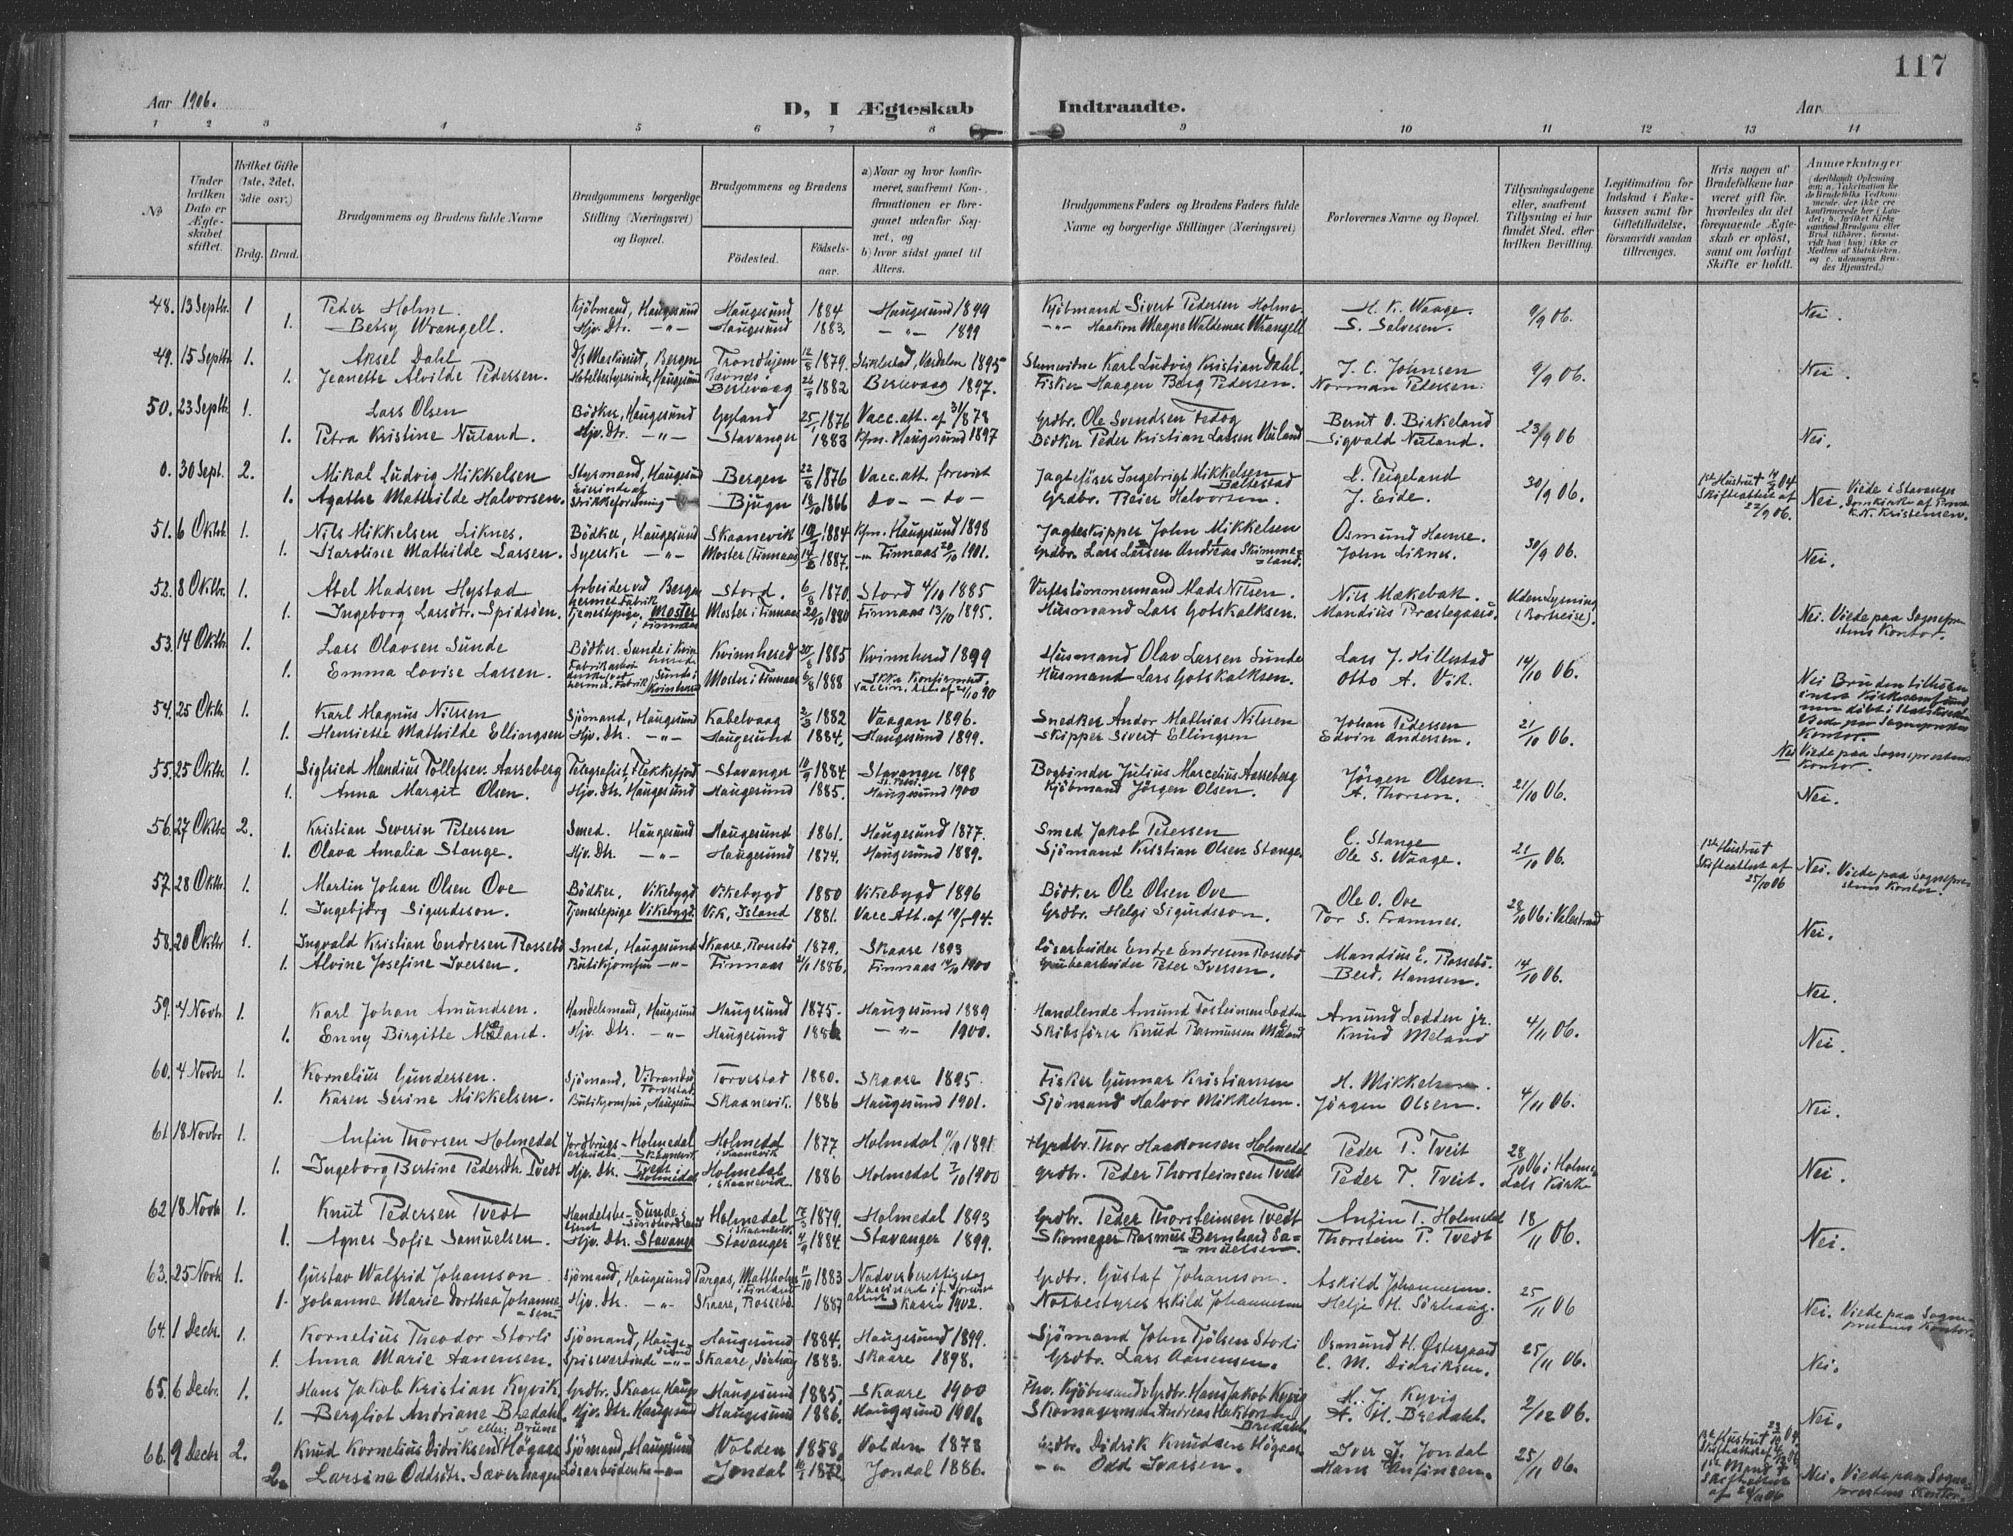 117
Aar 1906.
D, I Ægteskab Indtraadte.
Aar
1 2 3 4 5 6 7 8 9 10 11 12 13 14
No
Under hvilken Dato er Ægteskabet stiftet.
Hvilket Gifte (1ste, 2det, 3die osv.)
Brdg. Brud.
Brudgommens og Brudens fulde Navne
Brudgommens borgerlige Stilling (Næringsvei) og Bopæl.
Brudgommens og Brudens
Fødested.
Fødselsaar.
a) Naar og hvor konfirmeret, saafremt Konfirmationen er foregaaet udenfor Sognet, og
b) hvor sidst gaaet til Alters.
Brudgommens Faders og Brudens Faders fulde Navne og borgerlige Stillinger (Næringsvei)
Forlovernes Navne og Bopæl.
Tillysningsdagene eller, saafremt Tillysning ei har fundet Sted, efter hvilken Bevilling.
Legitimation for Indskud i Enkekassen samt for Giftetilladelse, forsaavidt saadan tiltrænges.
Hvis nogen af Brudefolkene har været gift før, hvorledes da det foregaaende Ægteskab er opløst, samt om lovligt Skifte er holdt.
Anmerkninger
48. 13 Septbr. 1 Peder Holm. Kjöbmand, Haugesund Haugesund 1884 Haugesund 1899 Kjöbmand Sivert Pedersen Holme H. K. Waage. 9/9 06. Nei.
1. Betsy Wrangell. Hjv. Dtr. -"- Haugesund 1883. -"- 1899 -"- Haakon Magne Waldemar Wrangell S. Salvesen.
49. 15 Septbr. 1. Aksel Dahl D/s Maskinist, Bergen Trondhjem 12/8 1879. Stiklestad, Værdalen 1895 Stenvidne Karl Ludvig Kristian Dahl. J. C. Johnsen 9/9 06. Nei.
1. Jeanette Alvilde Pedersen. Hotelbestyrerinde, Haugesund Berlevaag 26/9 1882 Berlevaag 1897. Fisker Haagen Berg Pedersen. Norman Pedersen.
50. 23 Septbr. 1. Lars Olsen Bödker, Haugesund Gyland 25/1 1876 Vacc. att. af 31/1 878 Grdbr. Ole Svendsen Bernt O. Birkeland 23/9 06 Nei.
1. Petra Kristine Nuland. Hjv. Dtr. -"- Stavanger 1883 Kfm. Haugesund 1897 Bödker Peder Kristian Larsen Nuland Sigvald Nuland.
0. 30 Sept. 2. Mikal Ludvig Mikkelsen Styrmand, Haugesund Bergen 22/8 1876 Vacc. att. forevist Jagtefører Ingebrigt Mikkelsen Baltestad L. Teigeland 30/9 06. 1ste Hustrut 04 Skifteattest af 22/9 06. Nei. Viede i Stavanger Domkirke af K. N. Kristensen.
1. Agathe Mathilde Halvorsen. Eierinde af Strikkeforretning Bjugn 1866 do - do - Grdbr. Reier Halvorsen. J. Eide.
51. 6 Oktbr. 1. Nils Mikkelsen Liknes. Bödker, Haugesund Skaanevik 1884 Kfm. Haugesund 1898 Jagteskipper John Mikkelsen Osmund Hamre. 30/9 06. Nei.
1. Karoline Mathilde Larsen. Syerske -"- Moster (Finnaas) 1887. -"- Finnaas 20/10 1901. Grdbr. Lars Larsen Andreas Skimmeland. John Liknes.
52. 8 Oktbr. 1. Abel Madsen Hystad Arbeider ved Bergen hermet. Fabrik Stord. 6/8 1870. Stord 4/10 1885 Verftstömmermand Mads Nilsen. Nils Mækebak. Uden Lysning (Bortreise). Nei. Viede paa Sogneprestens Kontor.
1. Ingeborg Larsdtr. Spidsöen. Tjenestepige, Moster i Finnaas Moster i Finnaas 20/10 1880 Finnaas 13/10 1895. Husmand Lars Gotskalksen. Mandius Præstegaard.
53. 14 Oktbr. 1. Lars Olavsen Sunde Bödker. Sunde i Kvinnherred Kvinnhered 20/8 1885 Kvinnherd 1899 Husmand Olav Larsen Sunde Lars J. Hillestad 14/10 06. Nei Bruden tilhörer intet Kirkesamfund men döbt i Statskirken Viede paa Sogneprestens Kontor.
1. Emma Lovise Larsen. Moster i Finnaas 6/8 1888 Ikke Konfirmert. Vaccin. Att. af 21/10 90 Husmand Lars Gotskalksen. Otto A. Vik.
54. 25 Oktbr. 1. Karl Magnus Nilssen Sjömand, Haugesund Kabelvaag 2/3 1882 Vaagan 1896. Snedker Andor Mathias Nilssen Johan Pedersen 21/10 06. Nei Viede paa Sogneprestens Kontor.
1. Henriette Mathilde Ellingsen Hjv. Dtr. -"- Haugesund 1884. Haugesund 1899. Skipper Sivert Ellingsen Edvin Andersen.
55. 25 Oktbr. 1. Sigfried Mandius Tollefsen Aasseberg Telegrafist, Flekkefjord Stavanger 10/9 1884. Stavanger St. Petri 1898 Bogbinder Julius Marcelius Aasseberg Jörgen Olsen. 21/10 06. Nei.
1. Anna Margit Olsen. Hjv. Dtr. Haugesund Haugesund 1885. Haugesund 1900 Kjöbmand Jörgen Olsen. A. Thorsen.
56. 27 Oktbr. 2. Kristian Severin Petersen Smed. Haugesund Haugesund 1861. Haugesund 1877. Smed Jakob Petersen C. Stange 21/10 06. 1ste Hustrut Skifteattest af 25/10 06 Nei. Viede paa Sogneprestens Kontor.
1. Olava Amalia Stange. Hjv. Dtr. -"- Haugesund 1874. Haugesund 1889. Sjömand Kristian Olsen Stange. Ole S. Waage.
57. 28 Oktbr. 1. Martin Johan Olsen Ove Bödker. Vikebygd Vikebygd 1880 Vikebygd 1896 Bödker Ole Olsen Ove Ole O. Ove 28/10 06 i Valestrand Nei.
1. Ingebjørg Sigurdsson. Tjenestepige Vikebygd Vik, Island 1881. Vacc. Att. af 19/5 94. Grdbr. Helgi Sigurdsson. Tor S. Framnes.
58. 20 Oktbr. 1. Ingvald Kristian Endresen Rossebö Smed, Haugesund Skaare, Rossebö 1879. Skaare 1893 Lösarbeider Endre Endresen Rossebö Mandius E. Rossebö. 14/10 06. Nei.
1. Alvine Josefine Iversen. Butikjomfru -"- Finnaas 1886. Finnaas 1900 Grubearbeider Peter Iversen. Berd. Hanssen.
59. 4 Novbr. 1. Karl Johan Amundsen. Handelsmand, Haugesund Haugesund 1875. Haugesund 1889 Handlende Amund Tosteinsen Lodden Amund Lodden jr. 4/11 06. Nei.
1. Enny Birgitte Meland. Hjv. Dtr. -"- Haugesund -"- 1900. Skibsfører Knud Rasmussen Meland Knud Meland
60. 4 Novbr. 1. Kornelius Gundersen. Sjömand, Torvestad Torvestad 1880. Skaare 1895. Fisker Gunnar Kristiansen H. Mikkelsen. 4/11 06. Nei.
1. Karen Serine Mikkelsen. Butikjomfru, Haugesund Skaanevik. 1886 Haugesund 1901. Sjömand Halvor Mikkelsen. Jörgen Olsen.
61 18 Novbr. 1. Anfin Thorsen Holmedal Jordbrugsarbeider Holmedal Skaanevik Holmedal i Skaanevik 1877. Holmedal 1891. Grdbr. Thor Haakonsen Holmedal Peder P. Tveit 28/10 06 i Holmedals Kirke Nei.
1. Ingeborg Bertine Pedersdtr. Tvedt Hjv. Dtr. Tvedt i Holmedal Holmedal i Skaanevik. 1886 Holmedal 7/10 1900 Grdbr. Peder Thorsteinsen Tvedt Peder T. Tveit.
62 18 Novbr. 1. Knut Pedersen Tvedt Handelsbetjent Sunde i Söndhordland Holmedal i Skaanevik 17/3 1879. Holmedal 1893 Grdbr. Peder Thorsteinsen Tvedt Anfin T. Holmedal 18/11 06. Nei.
1. Agnes Sofie Samuelsen. Hjv. Dtr. Stavanger Stavanger 4/9 1884. Stavanger 1899. Skomager Rasmus Bernhard Samuelsen. Thorstein P. Tvedt
63. 25 Novbr. 1. Gustav Walfrid Johansson. Sjömand, Haugesund Pargas, i Finland 11/10 1883 Nadverberettiget Grdbr. Gustaf Johansson. Askild Johannesen. 25/11 06 Nei. Viede paa Sogneprestens Kontor.
1. Johanne Marie Dorthea Johannessen Hjv. Dtr. -"- Skaare, Rossebö. 1887 Skaare 1902. Notbestyrer Askild Johannesen Helje H. Sörhaug.
64. 1 Decbr. 1. Kornelius Theodor Storli Sjömand, Haugesund Haugesund 1884. Haugesund 1899. Sjömand John Tjölsen Storli Osmund H. Østergaard 25/11 06. Nei.
1. Anna Marie Aanensen. Spiseværtinde -"- Skaare, Sörhaug 1883. Skaare 1898. Grdbr. Lars Aanensen. C. M. Didriksen.
65. 6 Decbr. 1. Hans Jakob Kristian Kyvik Grdbr. Skaare Haugesund 1885. Skaare 1900 Fhv. Kjöbmand & Grdbr. Hans Jakob Kyvig H. J. Kyvig 2/12 06. Nei.
1. Bergliot Andriane Bredahl. eller: Brune Hjv. Dtr. Haugesund Haugesund 1886. Haugesund 1901. Skomagermester Andreas Bredahl A. H. Bredahl.
66. 9 Decbr 2. Knud Kornelius Didriksen Högaas Sjömand, Haugesund Volden 1858. Volden 1873 Grdbr. Didrik Knudsen Högaas Iver J. Jondal 25/11 06. 1ste Hustrut 04 Skifteattest Nei. Viede paa Sogneprestens Kontor.
2. Larsine Oddsdtr. Sæverhagen Lösarbeiderske -"- Jondal 1872. Jondal 1886. -"- Odd Ivarsen. Hans Anfinsen. 1ste Mand Skifteattest af 06